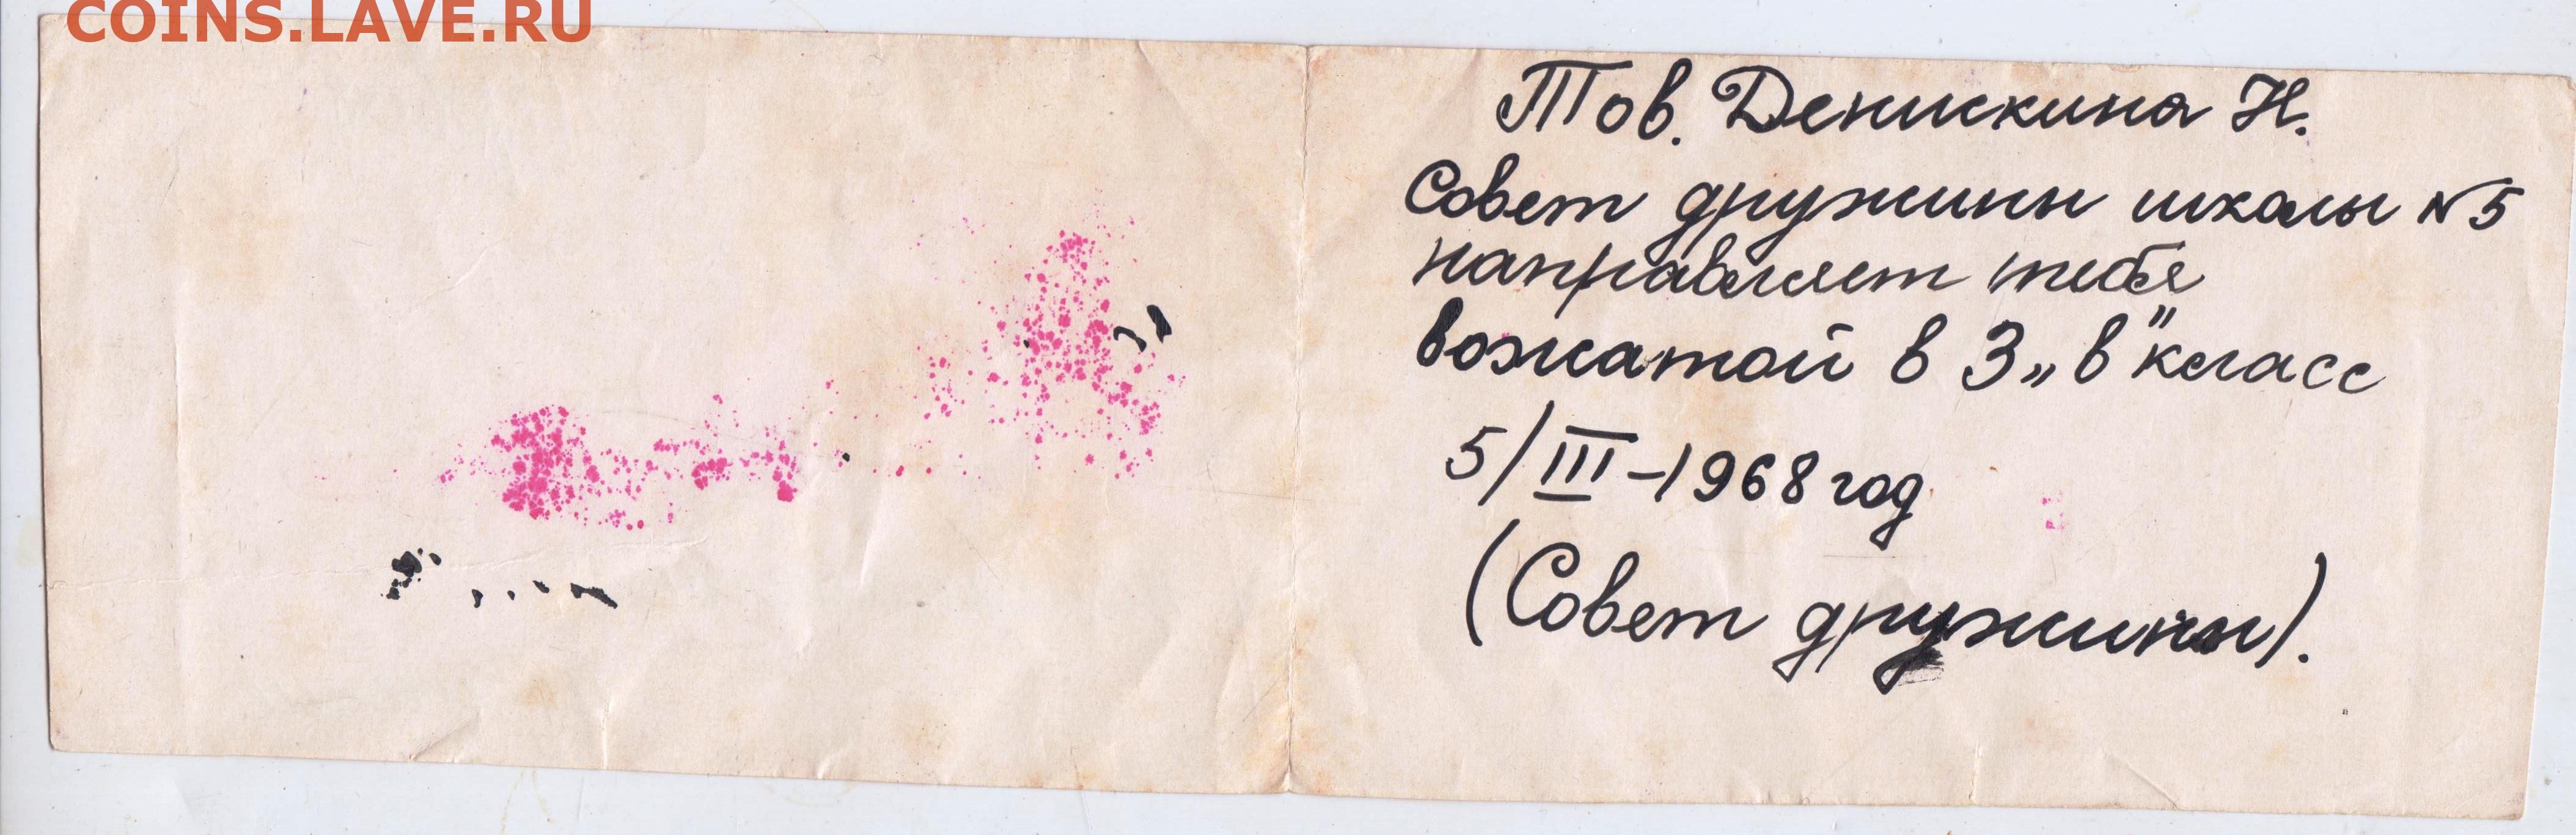 COINS.LAVE.RU
Тов. Денискина Н.
Совет дружины школы №5
направляет тебя
вожатой в 3 „в" класс
5/III-1968 год
(Совет дружины).